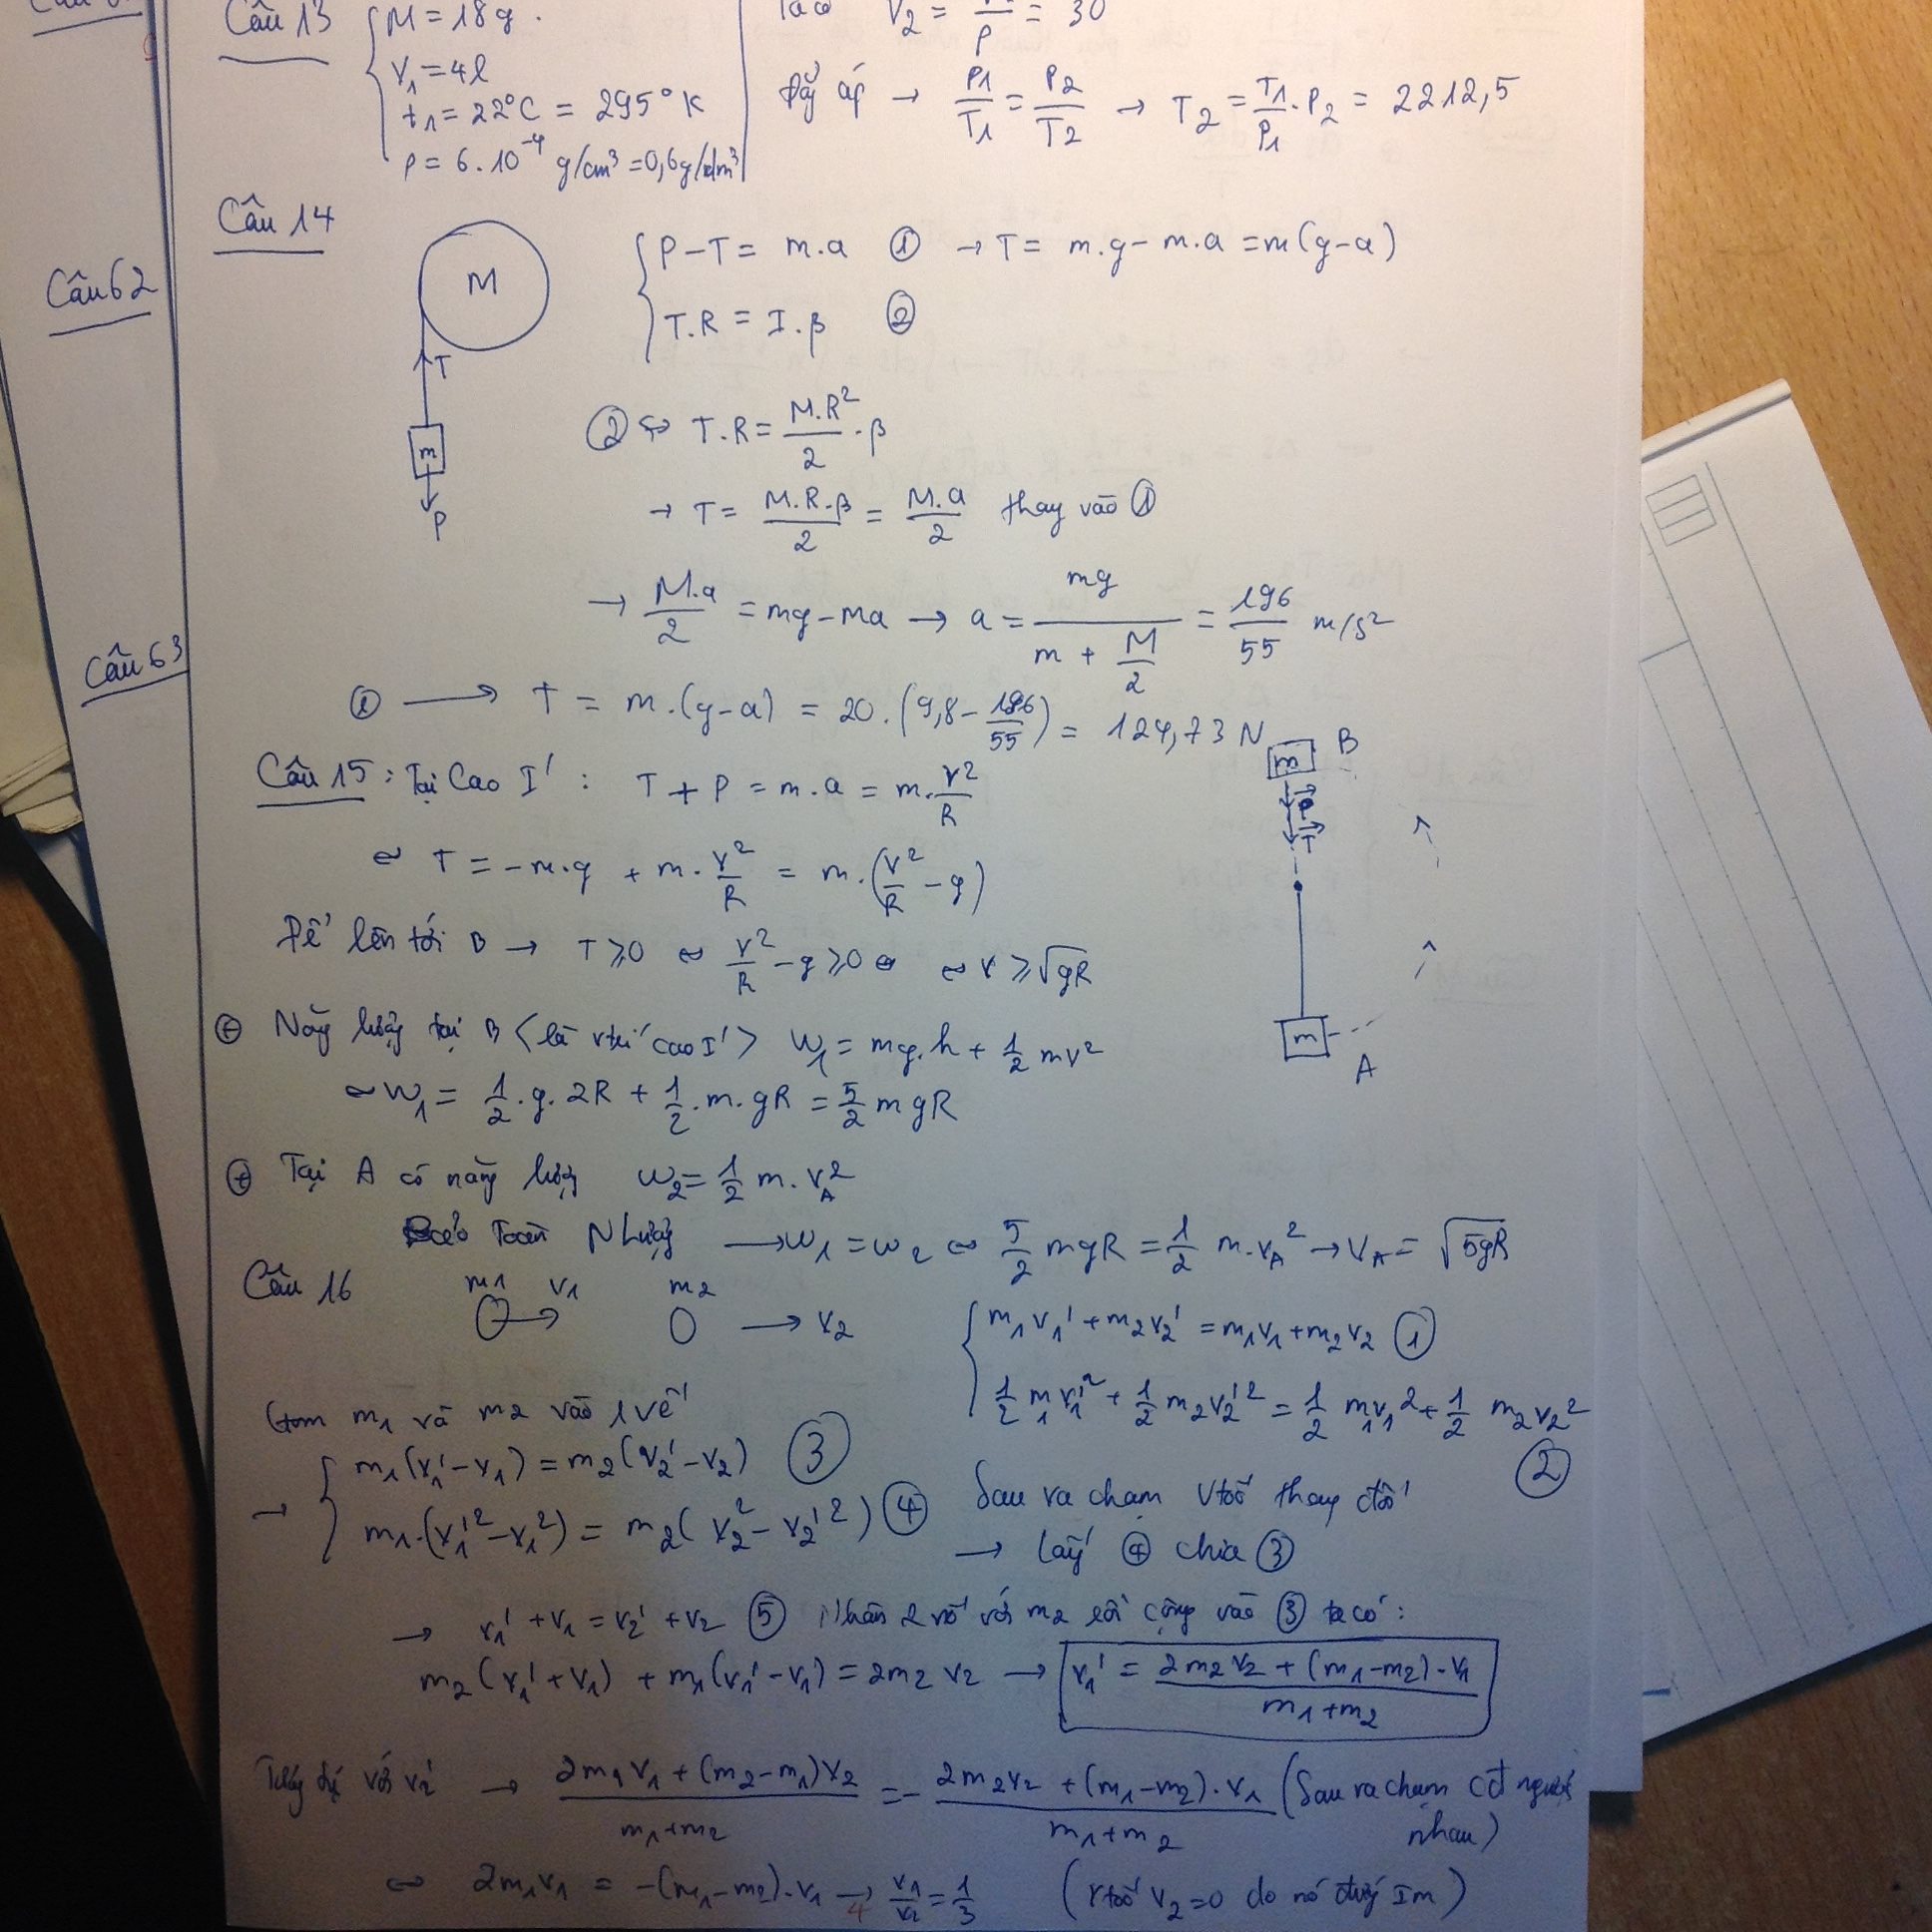 Câu 13
M = 18g.
V₁ = 4l
t₁ = 22°C = 295°K
ρ = 6.10⁻⁴ g/cm³ = 0,6g/dm³
Ta có V₂ = = 30
ρ
Đẳg áp → P₁/T₁ = P₂/T₂ → T₂ = T₁/P₁ . P₂ = 2212,5
Câu 62
Câu 63
Câu 14
M
T
m
P
P - T = m.a ① → T = m.g - m.a = m(g-a)
T.R = I.β ②
② ⇔ T.R = M.R²/2 . β
→ T = M.R.β/2 = M.a/2 thay vào ①
→ M.a/2 = mg - ma → a = mg/(m + M/2) = 196/55 m/s²
① → T = m.(g-a) = 20.(9,8 - 196/55) = 124,73 N
Câu 15: Tại Cao I' : T + P = m.a = m.v²/R
⇔ T = -m.g + m.v²/R = m.(v²/R - g)
Để lên tới B → T ≥ 0 ⇔ v²/R - g ≥ 0 ⇔ v ≥ √gR
m B
P
T
m
A
⊕ Năg lượg tại B <là vtrí cao I'> W₁ = mg.h + 1/2 mv²
⇔ W₁ = 1/2 . g. 2R + 1/2 . m. gR = 5/2 mgR
⊕ Tại A có năg lượg W₂ = 1/2 m. v_A²
Toàn Nlượg → W₁ = W₂ ⇔ 5/2 mgR = 1/2 m.v_A² → v_A = √5gR
Câu 16
m₁ v₁ m₂
→ v₂
m₁v₁' + m₂v₂' = m₁v₁ + m₂v₂ ①
1/2 m₁v₁'² + 1/2 m₂v₂'² = 1/2 m₁v₁² + 1/2 m₂v₂² ②
Gom m₁ và m₂ vào 1 vế
→ m₁(v₁' - v₁) = m₂(v₂' - v₂) ③
m₁.(v₁'² - v₁²) = m₂(v₂² - v₂'²) ④
Sau va chạm Vtốc thay đổi
→ lấy ④ chia ③
→ v₁' + v₁ = v₂' + v₂ ⑤ Nhân 2 vế với m₂ rồi cộng vào ③ ta có:
m₂(v₁' + v₁) + m₁(v₁' - v₁) = 2m₂v₂ → v₁' = (2m₂v₂ + (m₁-m₂).v₁)/(m₁+m₂)
Tươg tự với v₂' → (2m₁v₁ + (m₂-m₁)v₂)/(m₁+m₂) = - (2m₂v₂ + (m₁-m₂).v₁)/(m₁+m₂) (Sau va chạm cđ ngược nhau)
⇔ 2m₁v₁ = -(m₁-m₂).v₁ → v₁/v₂ = 1/3 (vtốc v₂=0 do nó đứg Im)
4